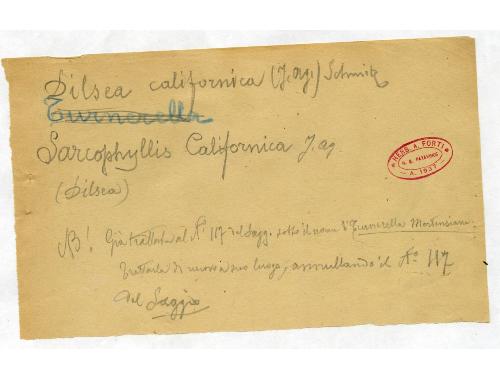 Dilsea californica (J. ag.) Schmitz
Turnerella
Sarcophyllis Californica J. ag.
(Dilsea)
HERB. A. FORTI
A. 1937
NB! Già trattata al N° 117 del Sagg. sotto il nome di Turnerella Mertensiana
trattarla di nuovo a suo luogo, annullando il N° 117
del Saggio